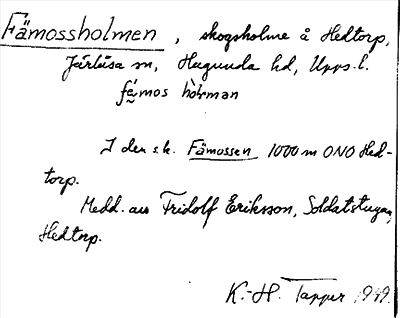 Fämossholmen, skogsholme å Hedtorp,
Järlåsa sn, Hagunda hd, Upps. l.
fä́mos hòlman
I den s.k. Fämossen 1000 m ONO Hed-
torp.
Medd. av Fridolf Eriksson, Soldatstugan,
Hedtorp.
K.-H. Tapper 1949.